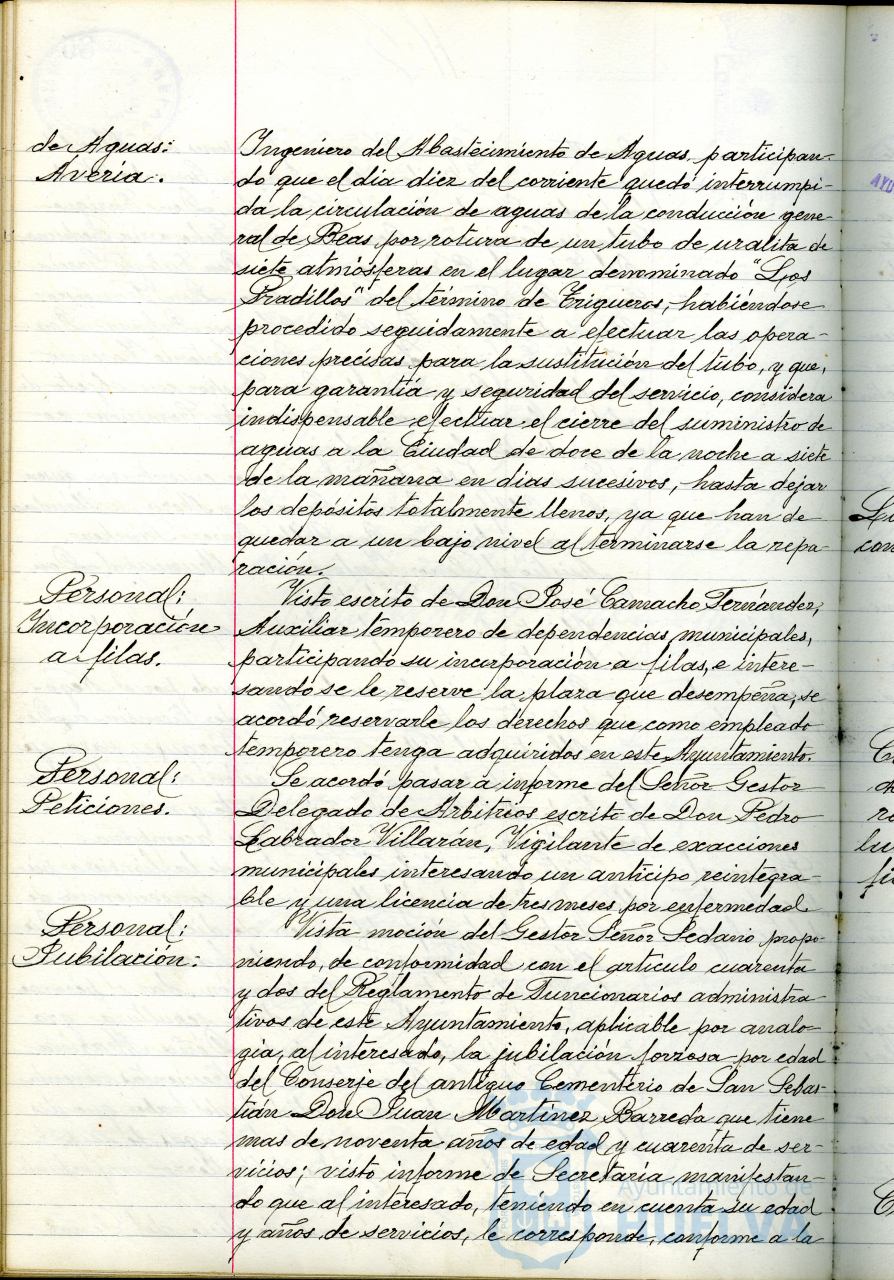 de Aguas:
Avería.
Ingeniero del Abastecimiento de Aguas, participan-
do que el día diez del corriente quedó interrumpi-
da la circulación de aguas de la conducción gene-
ral de Beas, por rotura de un tubo de uralita de
siete atmósferas en el lugar denominado "Los
Pradillos" del término de Trigueros, habiéndose
procedido seguidamente a efectuar las opera-
ciones precisas para la sustitución del tubo, y que,
para garantía y seguridad del servicio, considera
indispensable efectuar el cierre del suministro de
aguas a la Ciudad de doce de la noche a siete
de la mañana en días sucesivos, hasta dejar
los depósitos totalmente llenos, ya que han de
quedar a un bajo nivel al terminarse la repa-
ración.
Personal:
Incorporación
a filas.
Visto escrito de Don José Camacho Fernández,
Auxiliar temporero de dependencias municipales,
participando su incorporación a filas, e intere-
sando se le reserve la plaza que desempeña, se
acordó reservarle los derechos que como empleado
temporero tenga adquiridos en este Ayuntamiento.
Personal:
Peticiones.
Se acordó pasar a informe del Señor Gestor
Delegado de Arbitrios escrito de Don Pedro
Labrador Villarán, Vigilante de exacciones
municipales interesando un anticipo reintegra-
ble y una licencia de tres meses por enfermedad.
Personal:
Jubilación:
Vista moción del Gestor Señor Sedano propo-
niendo, de conformidad con el artículo cuarenta
y dos del Reglamento de Funcionarios administra-
tivos de este Ayuntamiento, aplicable por analo-
gía, al interesado, la jubilación forzosa por edad
del Conserje del antiguo Cementerio de San Sebas-
tián Don Juan Martínez Barreda que tiene
mas de noventa años de edad y cuarenta de ser-
vicios; visto informe de Secretaría manifestan-
do que al interesado, teniendo en cuenta su edad
y años de servicios, le corresponde, conforme a la
Ayuntamiento de
HUELVA